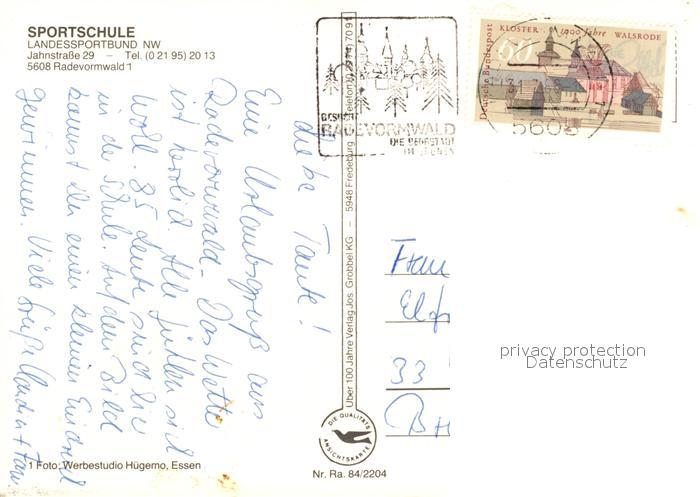 SPORTSCHULE
LANDESSPORTBUND NW
Jahnstraße 29 – Tel. (0 21 95) 20 13
5608 Radevormwald 1
Liebe Tante!
Eine Urlaubsgruß aus
Radevormwald. Das Wetter
ist herrlich. Alle fühlen sich
wohl. 85 Leute sind hier
in der Schule. Auf dem Bild
kannst Du einen kleinen Eindruck
gewinnen. Viele Grüße
1 Foto: Werbestudio Hügemo, Essen
Über 100 Jahre Verlag Jos. Grobbel KG – 5948 Fredeburg
DIE QUALITÄTS
ANSICHTSKARTE
Nr. Ra. 84/2204
BESUCHT
RADEVORMWALD
DIE BERGSTADT
Deutsche Bundespost
KLOSTER · 1000 Jahre WALSRODE
60
5608
Frau
33
privacy protection
Datenschutz